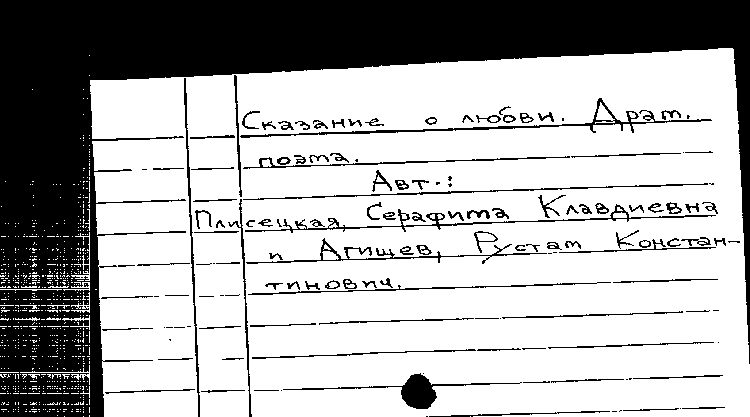 Сказание о любви. Драм.
поэма.
Авт.:
Плисецкая, Серафита Клавдиевна
и Агишев, Рустам Констан-
тинович.